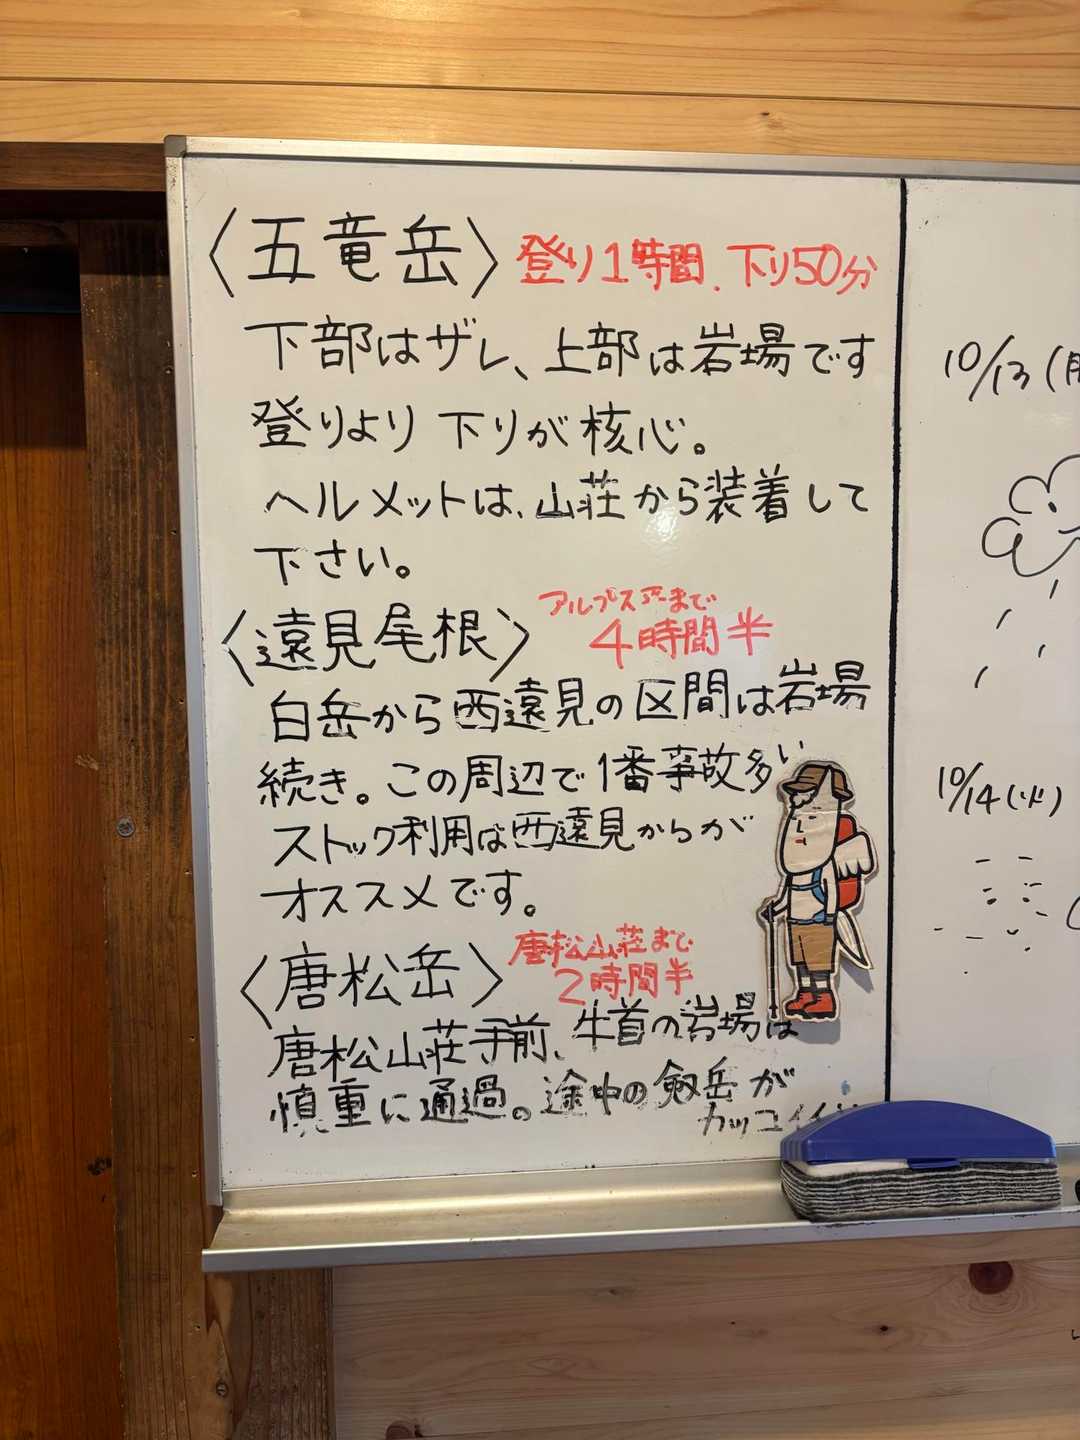 〈五竜岳〉登り1時間、下り50分
下部はザレ、上部は岩場です
登りより下りが核心。
ヘルメットは、山荘から装着して
下さい。
〈遠見尾根〉アルプス平まで
4時間半
白岳から西遠見の区間は岩場
続き。この周辺で1番事故多い
ストック利用は西遠見からが
オススメです。
〈唐松岳〉唐松山荘まで
2時間半
唐松山荘手前、牛首の岩場は
慎重に通過。途中の剱岳が
カッコイイ
10/13(月
10/14(火)